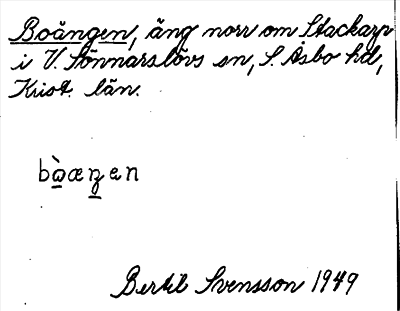 Boängen, äng norr om Stackarp
i V. Sönnarslövs sn, S. Åsbo hd,
Krist. län.
bòæŋen
Bertil Svensson 1949